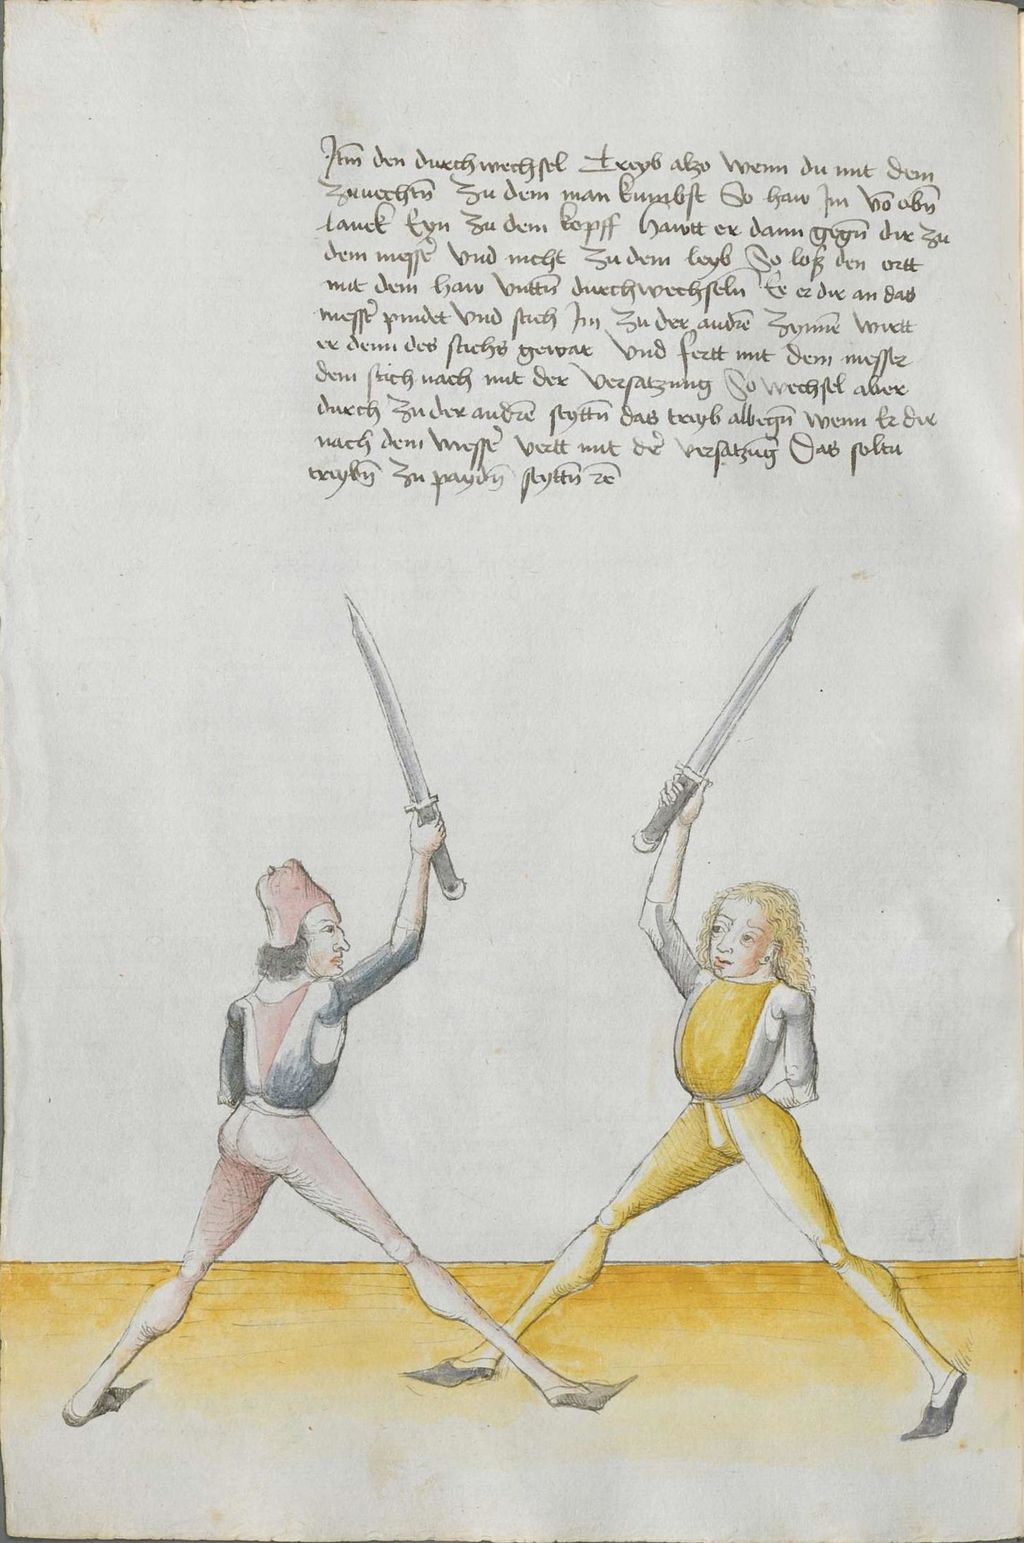 Itm̄ den durchwechsel Treyb alzo wenn du mit dem
zuuechtn̄ zu dem man kumbst So haw Im vō obn̄
lanck Eyn zu dem kopff hawtt er dann gegn̄ dir zu
dem messer̄ vnd nicht zu dem leyb So loß den ortt
mit dem haw vnttn̄ durchwechseln̄ Er er dir an das
messer̄ pindet vnd stich Im zu der andrē wirtt
er denn des stichs gewar vnd fertt mit dem messer
dem stich nach mit der versatzung So wechsel aber
durch zu der andrē seyttn̄ das treyb albegn̄ wenn Er dir
nach dem messer̄ vertt mit der̄ versatzūg Das soltu
treybn̄ zu paydn̄ seyttn̄ rē